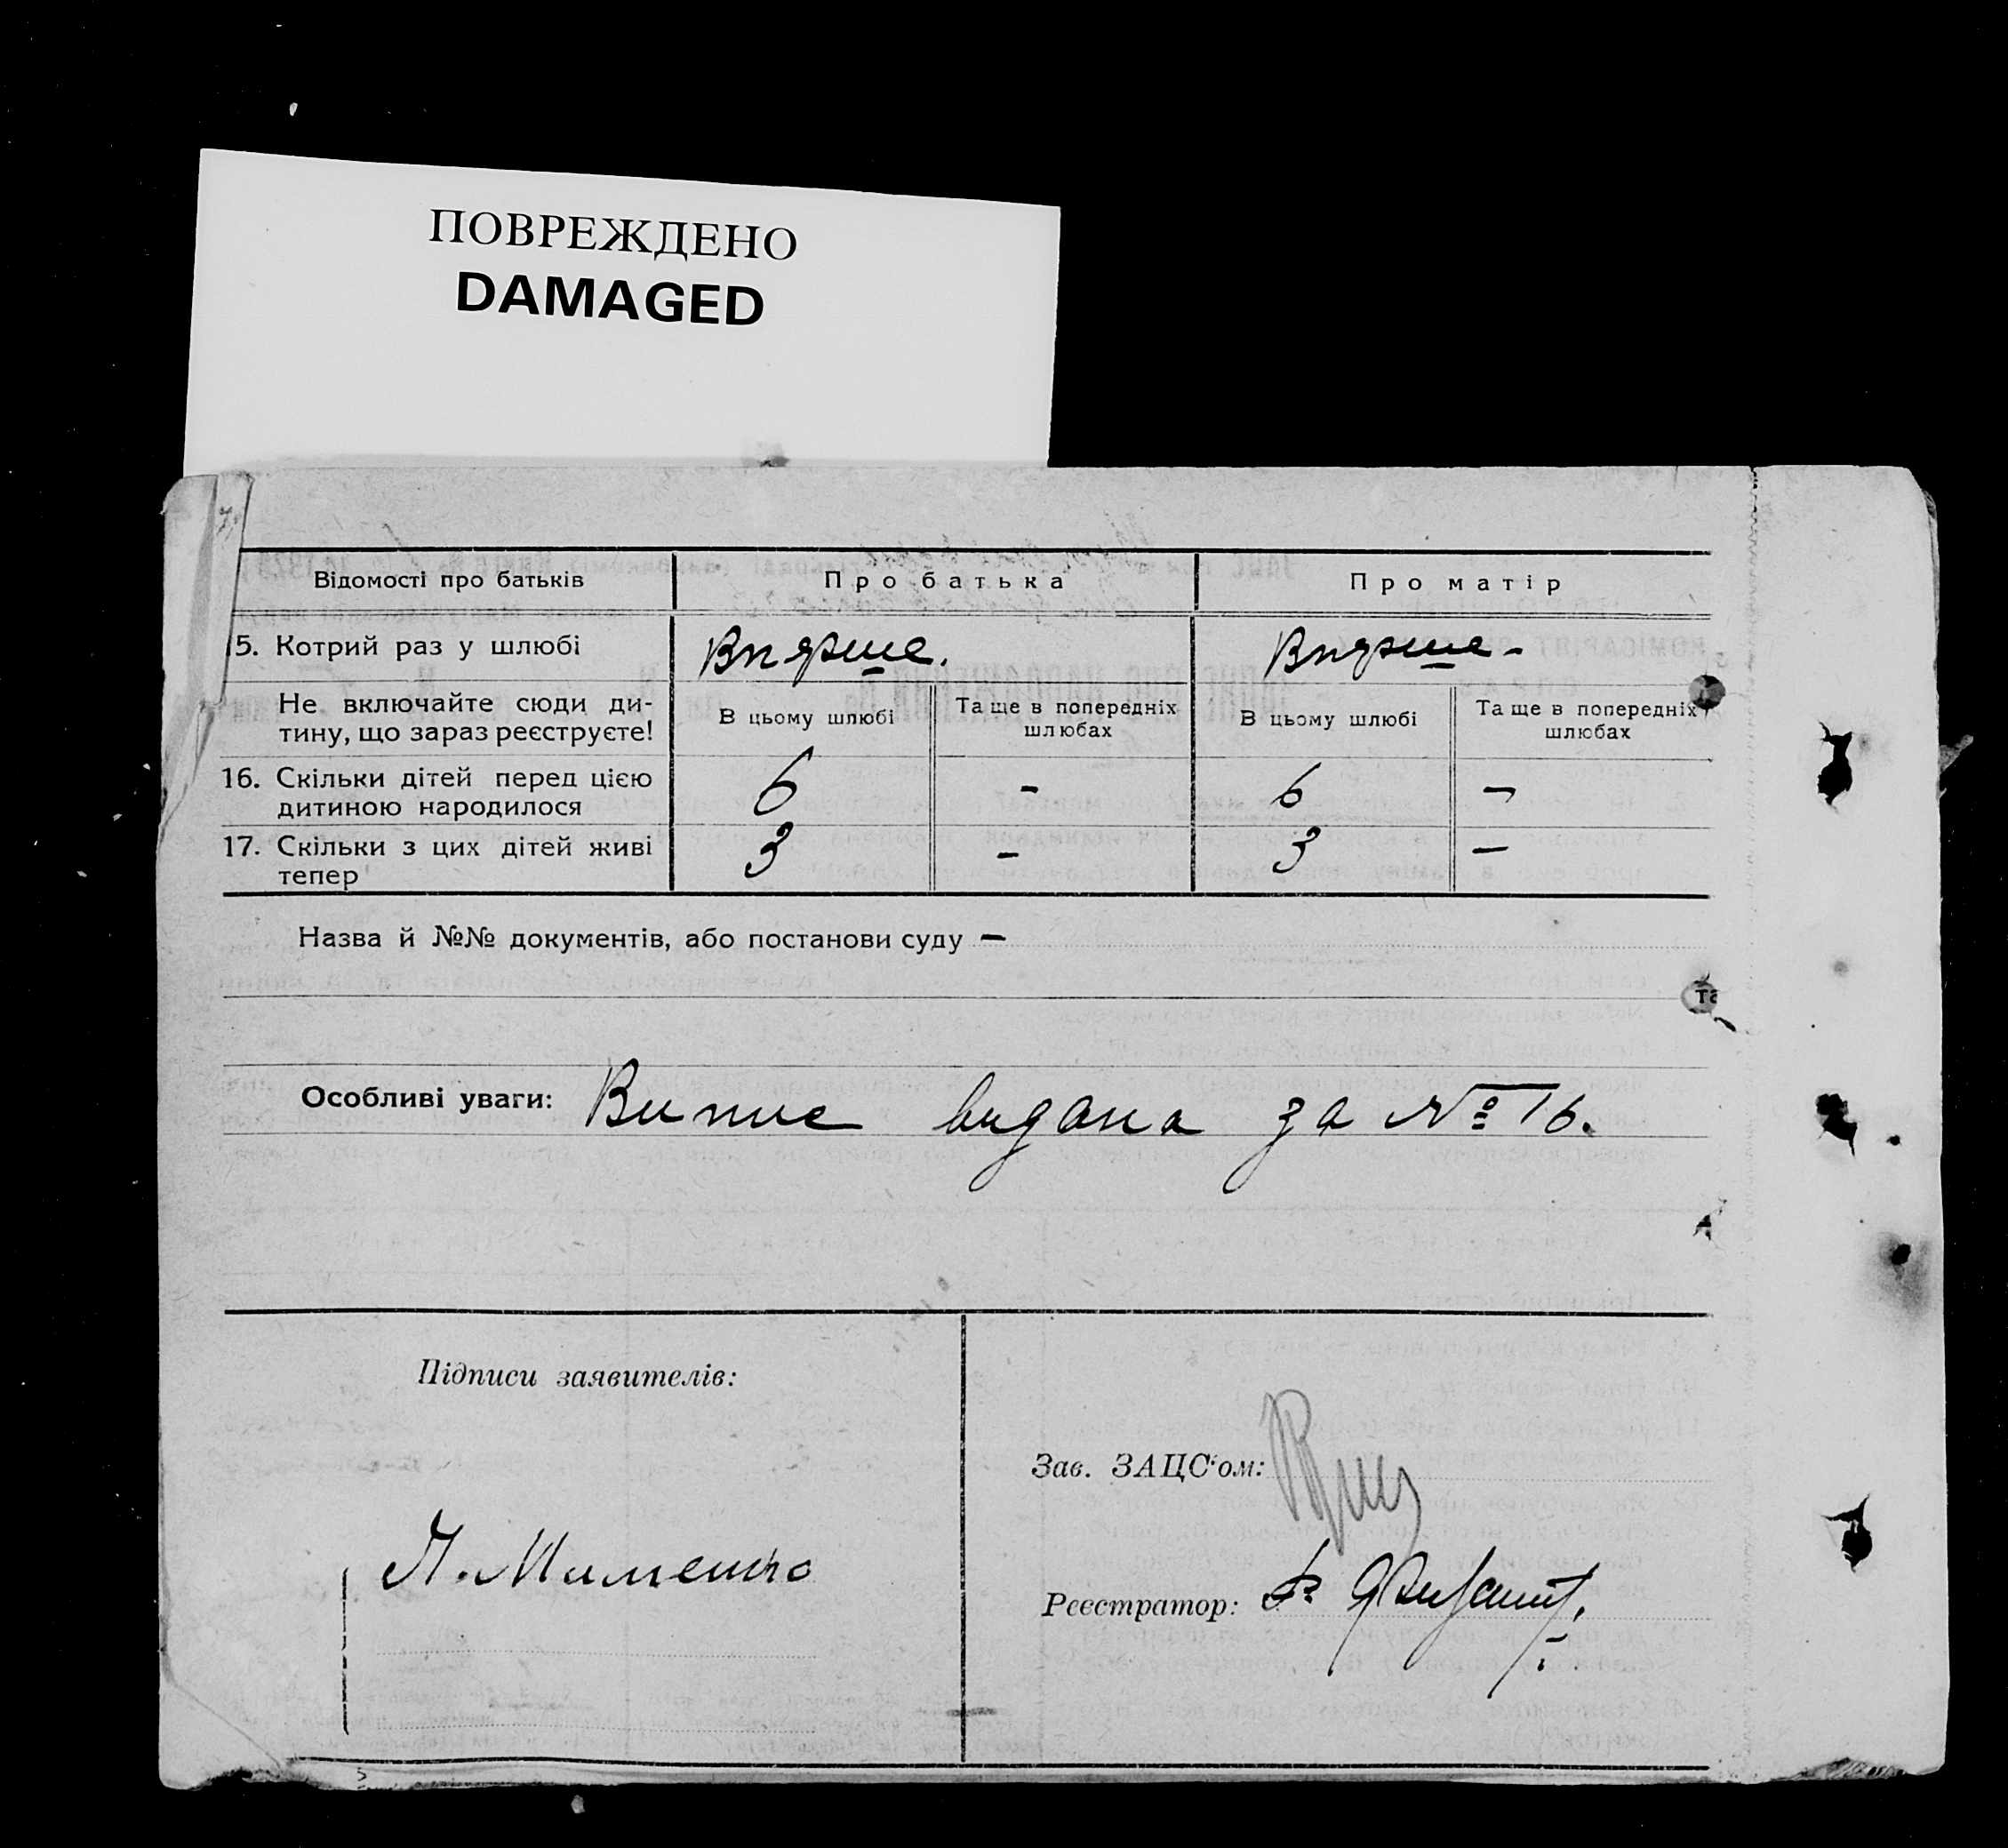 ПОВРЕЖДЕНО
DAMAGED
Відомості про батьків
Про батька
Про матір
5. Котрий раз у шлюбі
Вперше.
Вперше-
Не включайте сюди ди-
тину, що зараз реєструєте!
В цьому шлюбі
Та ще в попередніх
шлюбах
В цьому шлюбі
Та ще в попередніх
шлюбах
16. Скільки дітей перед цією
дитиною народилося
6
-
6
-
17. Скільки з цих дітей живі
тепер
3
-
3
-
Назва й №№ документів, або постанови суду -
та
Особливі уваги: Випис видана за № 16.
Підписи заявителів:
Зав. ЗАЦС'ом:
Реєстратор: